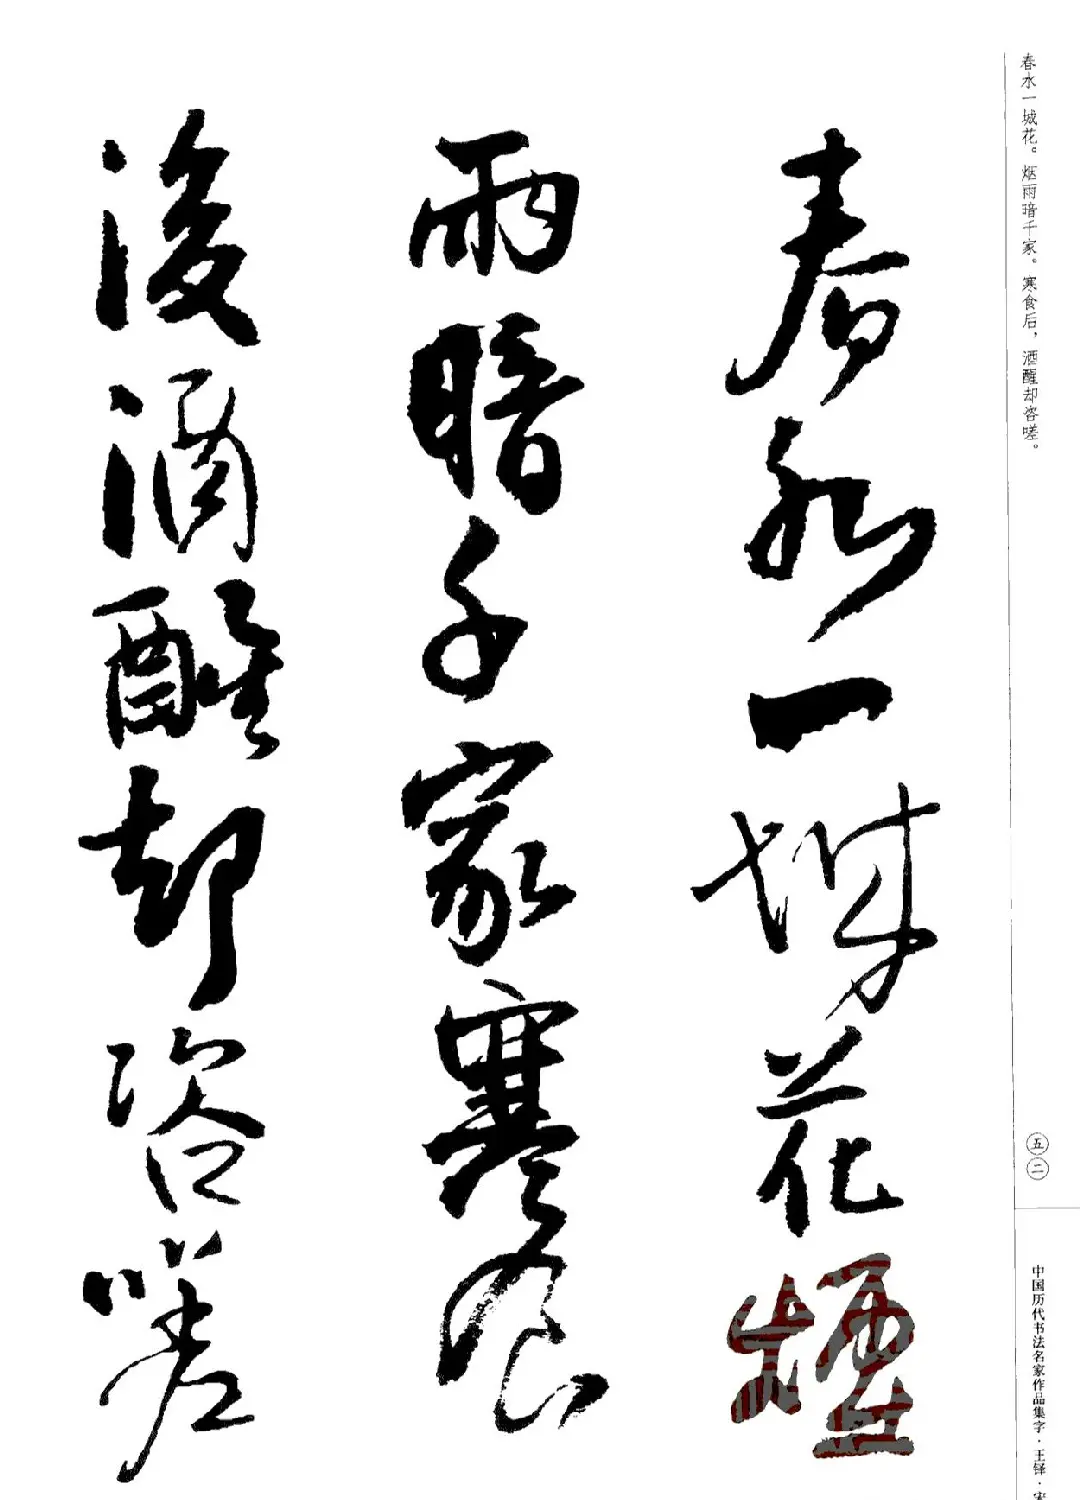 春水一城花。烟雨暗千家。寒食后，酒醒却咨嗟。
春水一城花煙
雨暗千家寒食
後酒醒却咨嗟
五二
中国历代书法名家作品集字·王铎·宋